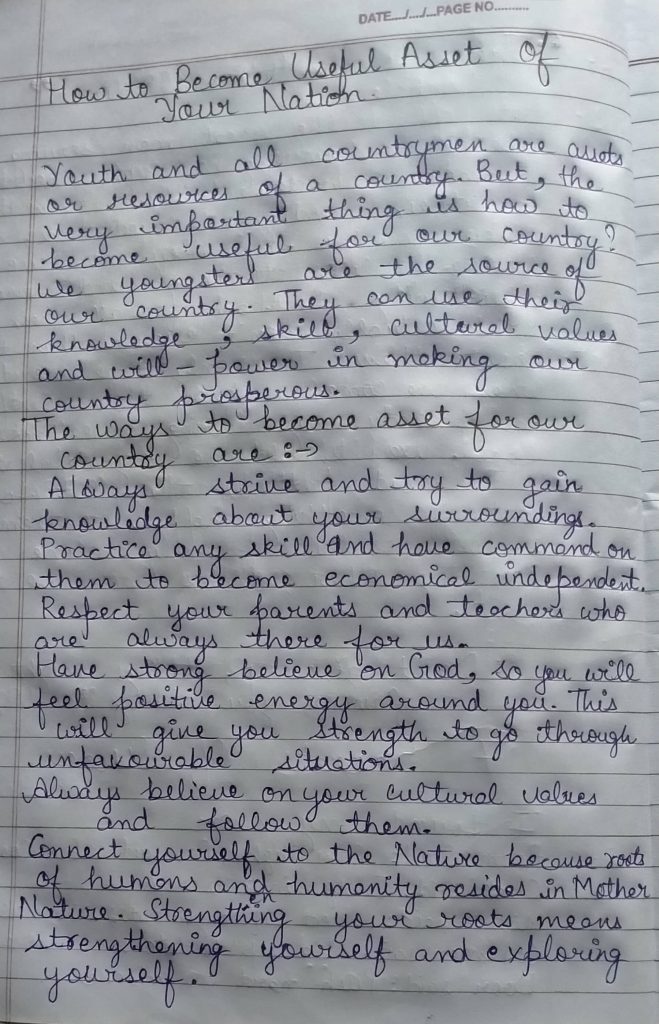 DATE..../..../....PAGE NO..........
How to Become Useful Asset of
Your Nation.
Youth and all countrymen are assets
or resources of a country. But, the
very important thing is how to
become useful for our country?
We youngsters are the source of
our country. They can use their
knowledge, skill, cultural values
and will-power in making our
country prosperous.
The ways to become asset for our
country are :→
Always strive and try to gain
knowledge about your surroundings.
Practice any skill and have command on
them to become economical independent.
Respect your parents and teachers who
are always there for us.
Have strong believe on God, so you will
feel positive energy around you. This
will give you strength to go through
unfavourable situations.
Always believe on your cultural values
and follow them.
Connect yourself to the Nature because roots
of humans and humanity resides in Mother
Nature. Strengthening your roots means
strengthening yourself and exploring
yourself.